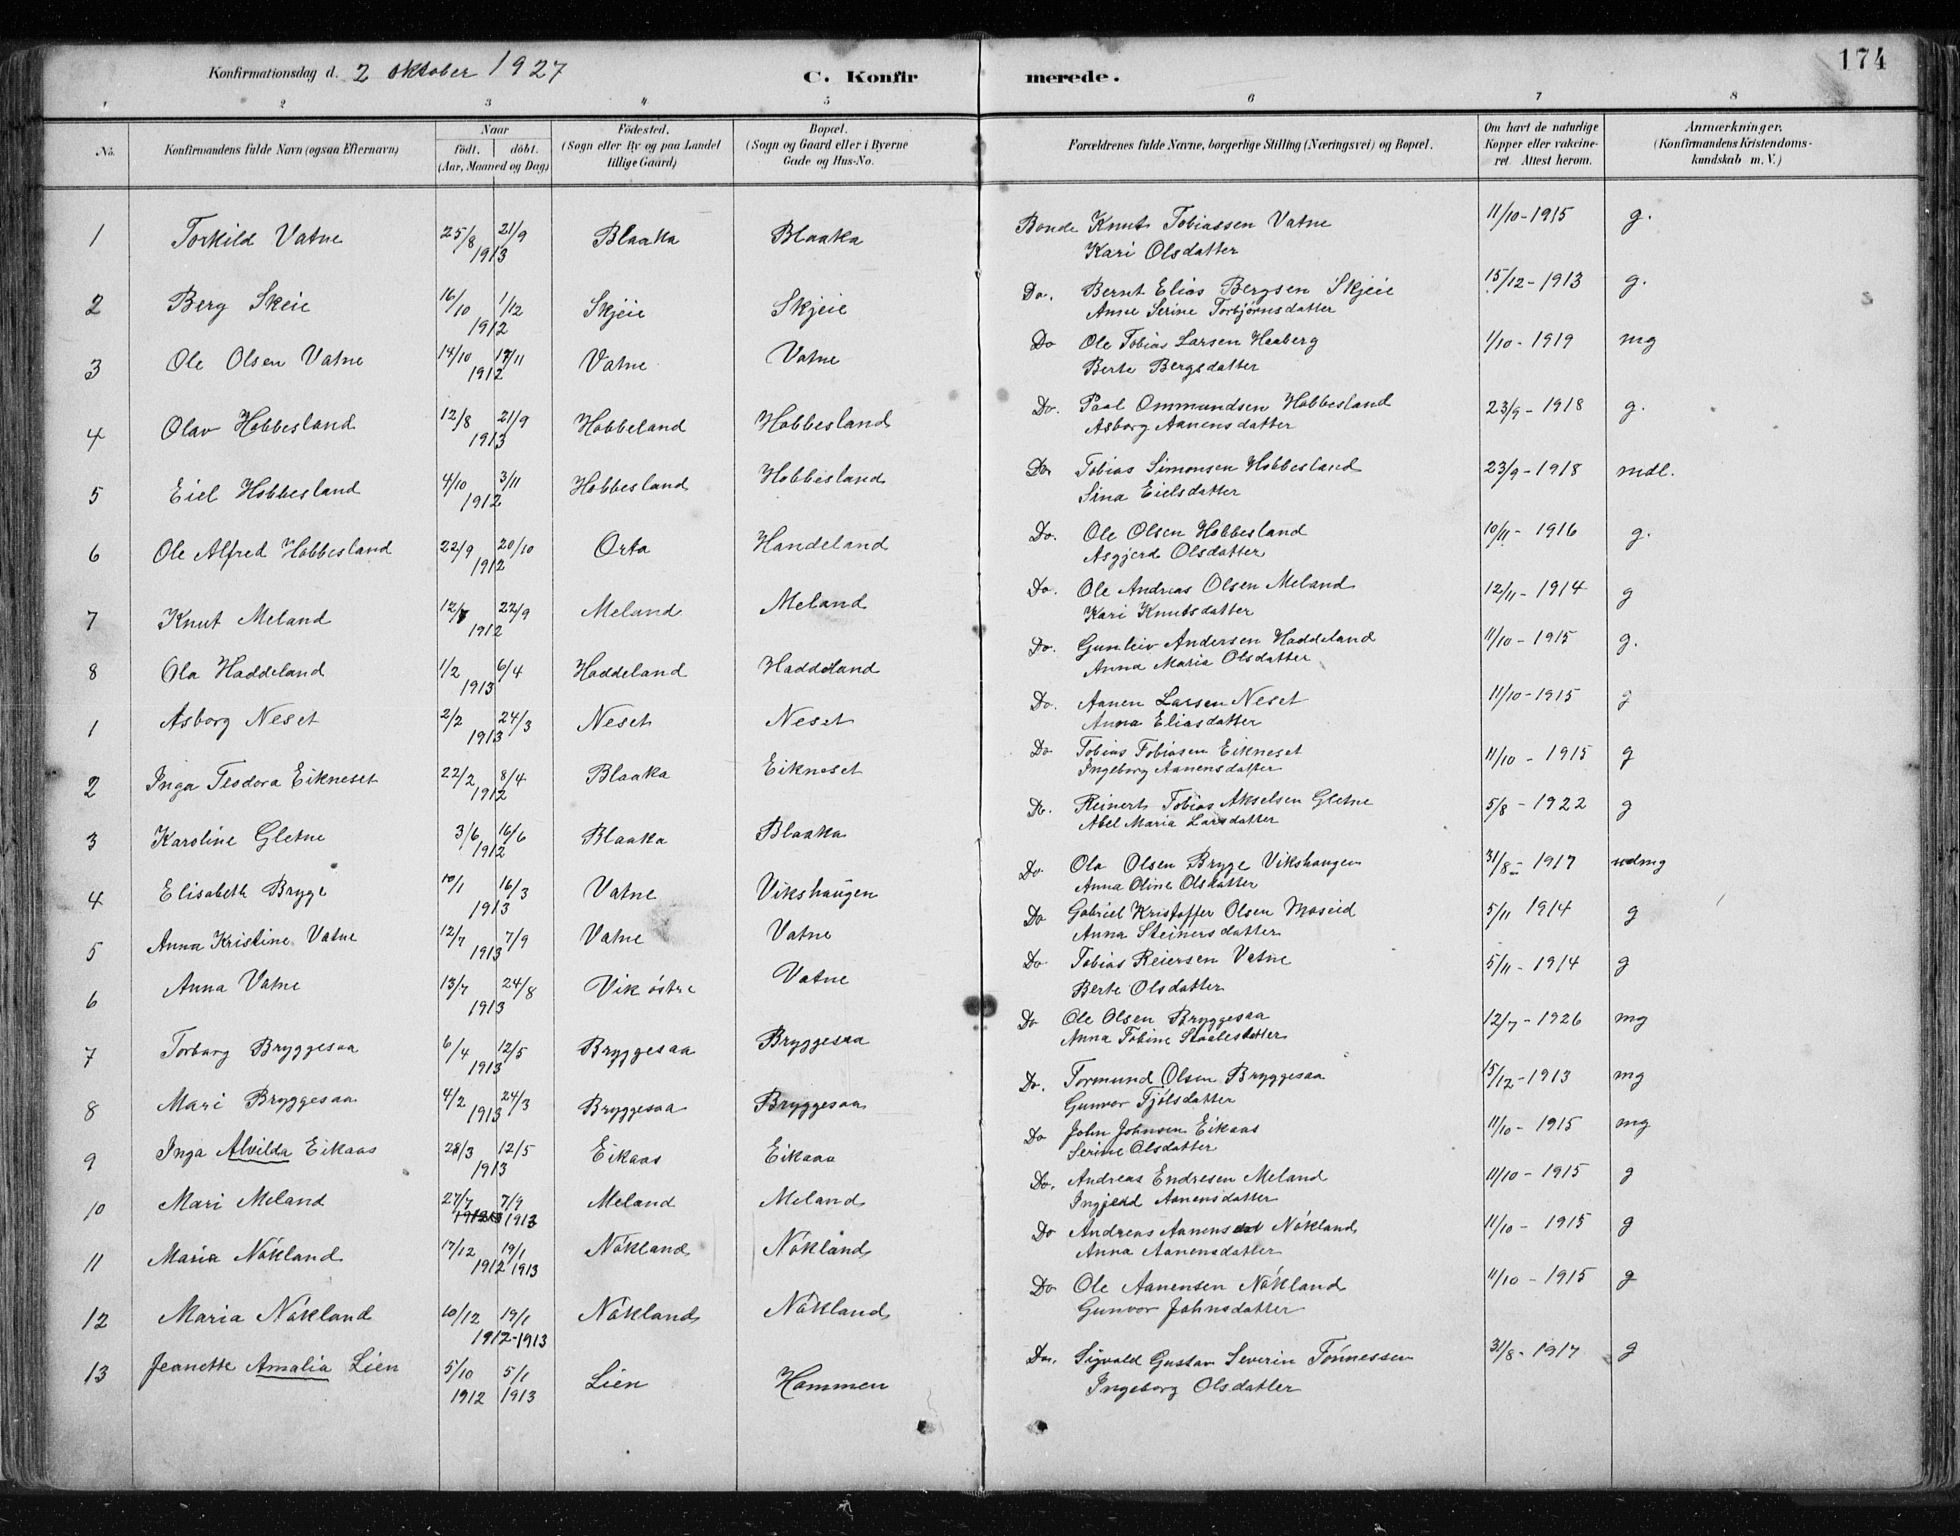 Konfirmationsdag d. 2 Oktober 1927 C. Konfirmerede. 174
1 2 3 4 5 6 7 8
No. Konfirmandens fulde Navn (ogsaa Efternavn) Naar födt. döbt. (Aar, Maaned og Dag) Födested. (Sogn eller By og paa Landet tillige Gaard) Bopæl. (Sogn og Gaard eller i Byerne Gade og Hus-No. Forældrenes fulde Navne, borgerlige Stilling (Næringsvei) og Bopæl. Om havt de naturlige Kopper eller vakcineret. Attest herom. Anmærkninger. (Konfirmandens Kristendomskundskab m. V.)
1 Torkild Vatne 25/8 21/9 1913 Blaaka Blaaka Bonde Knut Tobiassen Vatne 11/10-1915 g.
Kari Olsdatter
2 Berg Skeie 16/10 1/12 1912 Skjeie Skjeie Do. Bernt Elias Bergsen Skjeie 15/12-1913 g.
Anne Serine Torbjørnsdatter
3 Ole Olsen Vatne 14/10 17/11 1912 Vatne Vatne Do Ole Tobias Larsen Haaberg 1/10-1919 mg
Berte Bergsdatter
4 Olav Hobbesland 12/8 21/9 1913 Hobbeland Hobbesland Do. Paal Ommundsen Hobbesland 23/9-1918 g.
Asborg Aanensdatter
5 Eiel Hobbesland 4/10 3/11 1912 Hobbesland Hobbesland Do Tobias Simonsen Hobbesland 23/9-1918 mdl.
Sina Eielsdatter
6 Ole Alfred Hobbesland 22/9 20/10 1912 Orta Handeland Do. Ole Olsen Hobbesland 10/11-1916 g.
Asgjerd Olsdatter
7 Knut Meland 22/9 1912 Meland Meland Do. Ole Andreas Olsen Meland 12/11-1914 g
Kari Knutsdatter
8 Ola Haddeland 1/2 6/4 1913 Haddeland Haddeland Do. Gunleiv Andersen Haddeland 11/10-1915 g.
Anna Maria Olsdatter
1 Asborg Neset 2/2 24/3 1913 Neset Neset Do. Aanen Larsen Neset 11/10-1915 g
Anna Eliasdatter
2 Inga Teodora Eikneset 22/2 8/4 1912 Blaaka Eikneset Do Tobias Tobiasen Eikneset 11/10-1915 g
Ingeborg Aanensdatter
3 Karoline Gletne 3/6 16/6 1912 Blaaka Blaaka Do. Reinert Tobias Akselsen Gletne 5/8-1922 g
Abel Maria Larsdatter
4 Elisabeth Brygge 10/1 16/3 1913 Vatne Vikshaugen Do Ola Olsen Brygge Vikshaugen 31/8-1917 udmg
Anna Oline Olsdatter
5 Anna Kristine Vatne 12/7 7/9 1913 Vatne Vatne Do Gabriel Kristoffer Olsen Moseid 5/11 1914 g
Anna Steinersdatter
6 Anna Vatne 13/7 24/8 1913 Vik østre Vatne Do Tobias Reiersen Vatne 5/11-1914 g
Berte Olsdatter
7 Torbarg Bryggesaa 6/4 12/5 1913 Bryggesaa Bryggesaa Do Ole Olsen Bryggesaa 12/7-1926 mg
Anna Tobine Staalesdatter
8 Mari Bryggesaa 4/2 24/3 1913 Bryggesaa Bryggesaa Do. Tormund Olsen Bryggesaa 15/12-1913 mg
Gunvor Tjølsdatter
9 Inga Alvilda Eikaas 28/3 12/5 1913 Eikaas Eikaas Do John Johnsen Eikaas 11/10-1915 mg
Serine Olsdatter
10 Mari Meland 27/7 7/9 1913 Meland Meland Do. Andreas Endresen Meland 11/10-1915 g
Ingjerd Aanensdatter
11 Maria Nökland 17/12 19/1 1912 1913 Nökland Nökland Do Andreas Aanens Nökland 11/10-1915 g
Anna Aanensdatter
12 Maria Nökland 10/12 19/1 1912-1913 Nökland Nökland Do Ole Aanensen Nökland 11/10-1915 g
Gunvor Johnsdatter
13 Jeanette Amalia Lien 5/10 5/1 1912 1913 Lien Hommen Do. Sigvald Gustav Severin Tönnessen 31/8-1917 g
Ingeborg Olsdatter